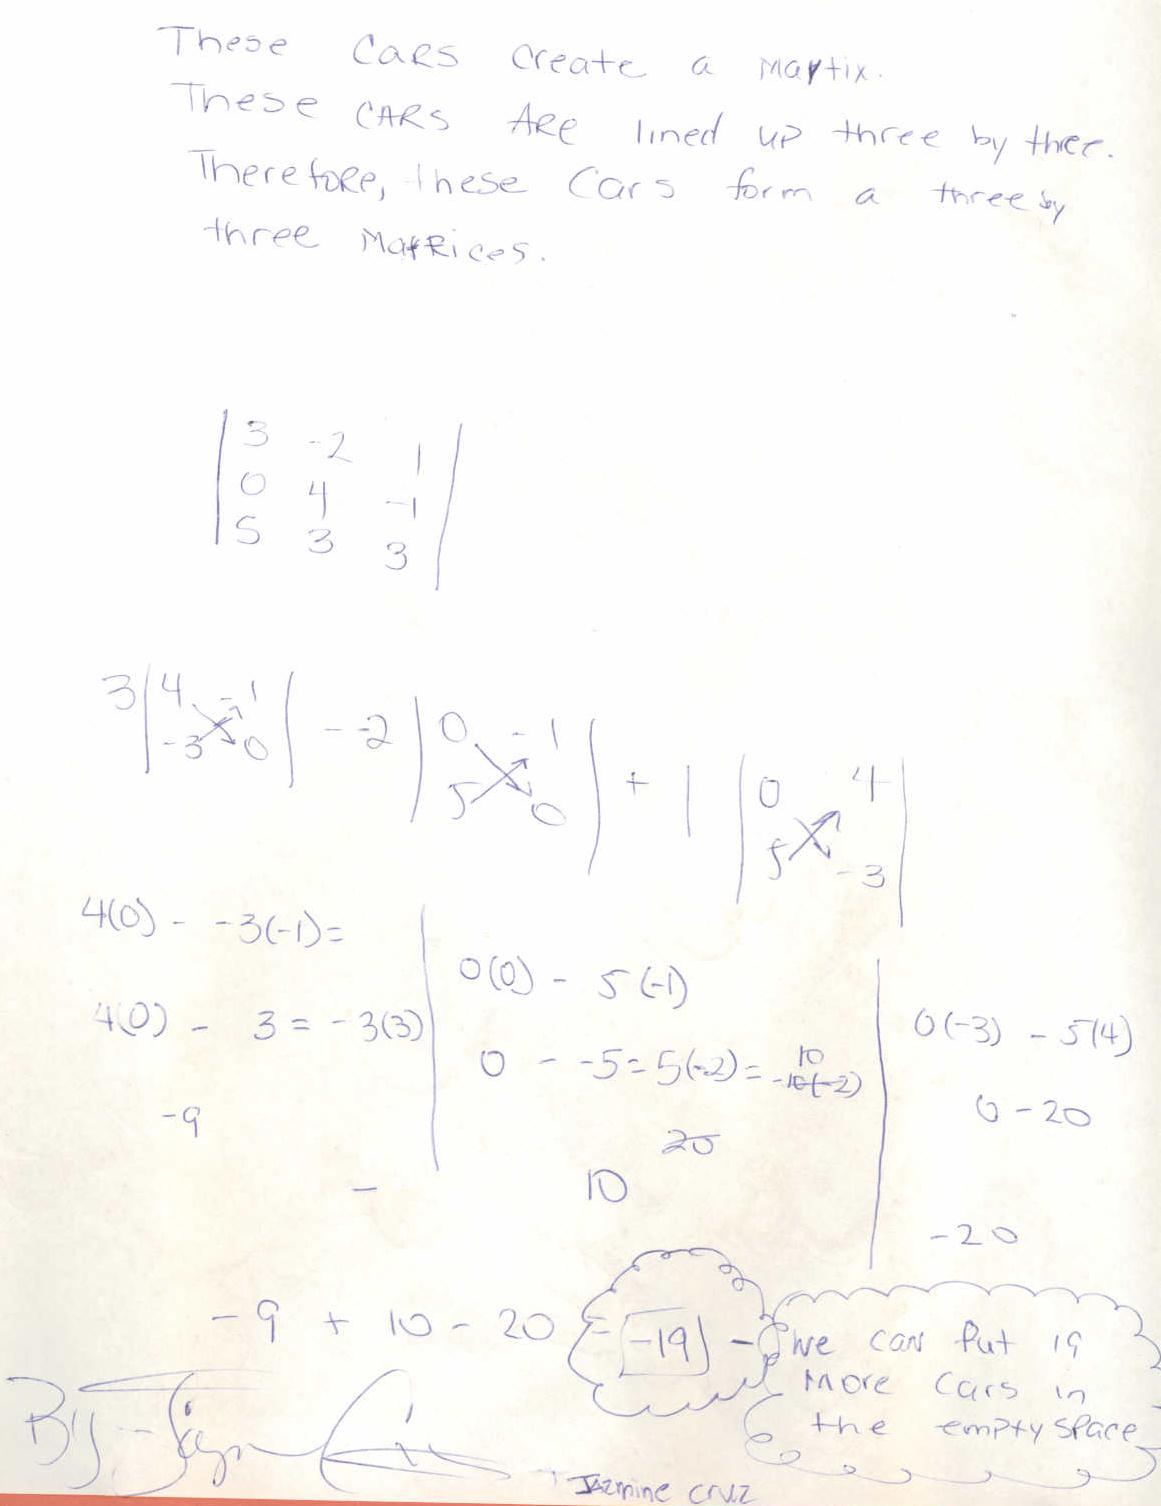 These cars create a Martix.
These CARS ARE lined up three by three.
Therefore, these Cars form a three by
three Matrices.
| 3 -2 1 |
| 0 4 -1 |
| 5 3 3 |
3 | 4 -1 | - -2 | 0 -1 | + 1 | 0 4 |
| -3 0 | | 5 0 | | 5 -3 |
4(0) - -3(-1)=
0(0) - 5(-1)
0(-3) - 5(4)
4(0) - 3 = -3(3)
0 - -5=5(-2)= 10
-10(-2)
0 - 20
-9
20
- 10
-20
-9 + 10 - 20 = -19 - We can Put 19
More Cars in
the empty space
By-
JAzmine cruz